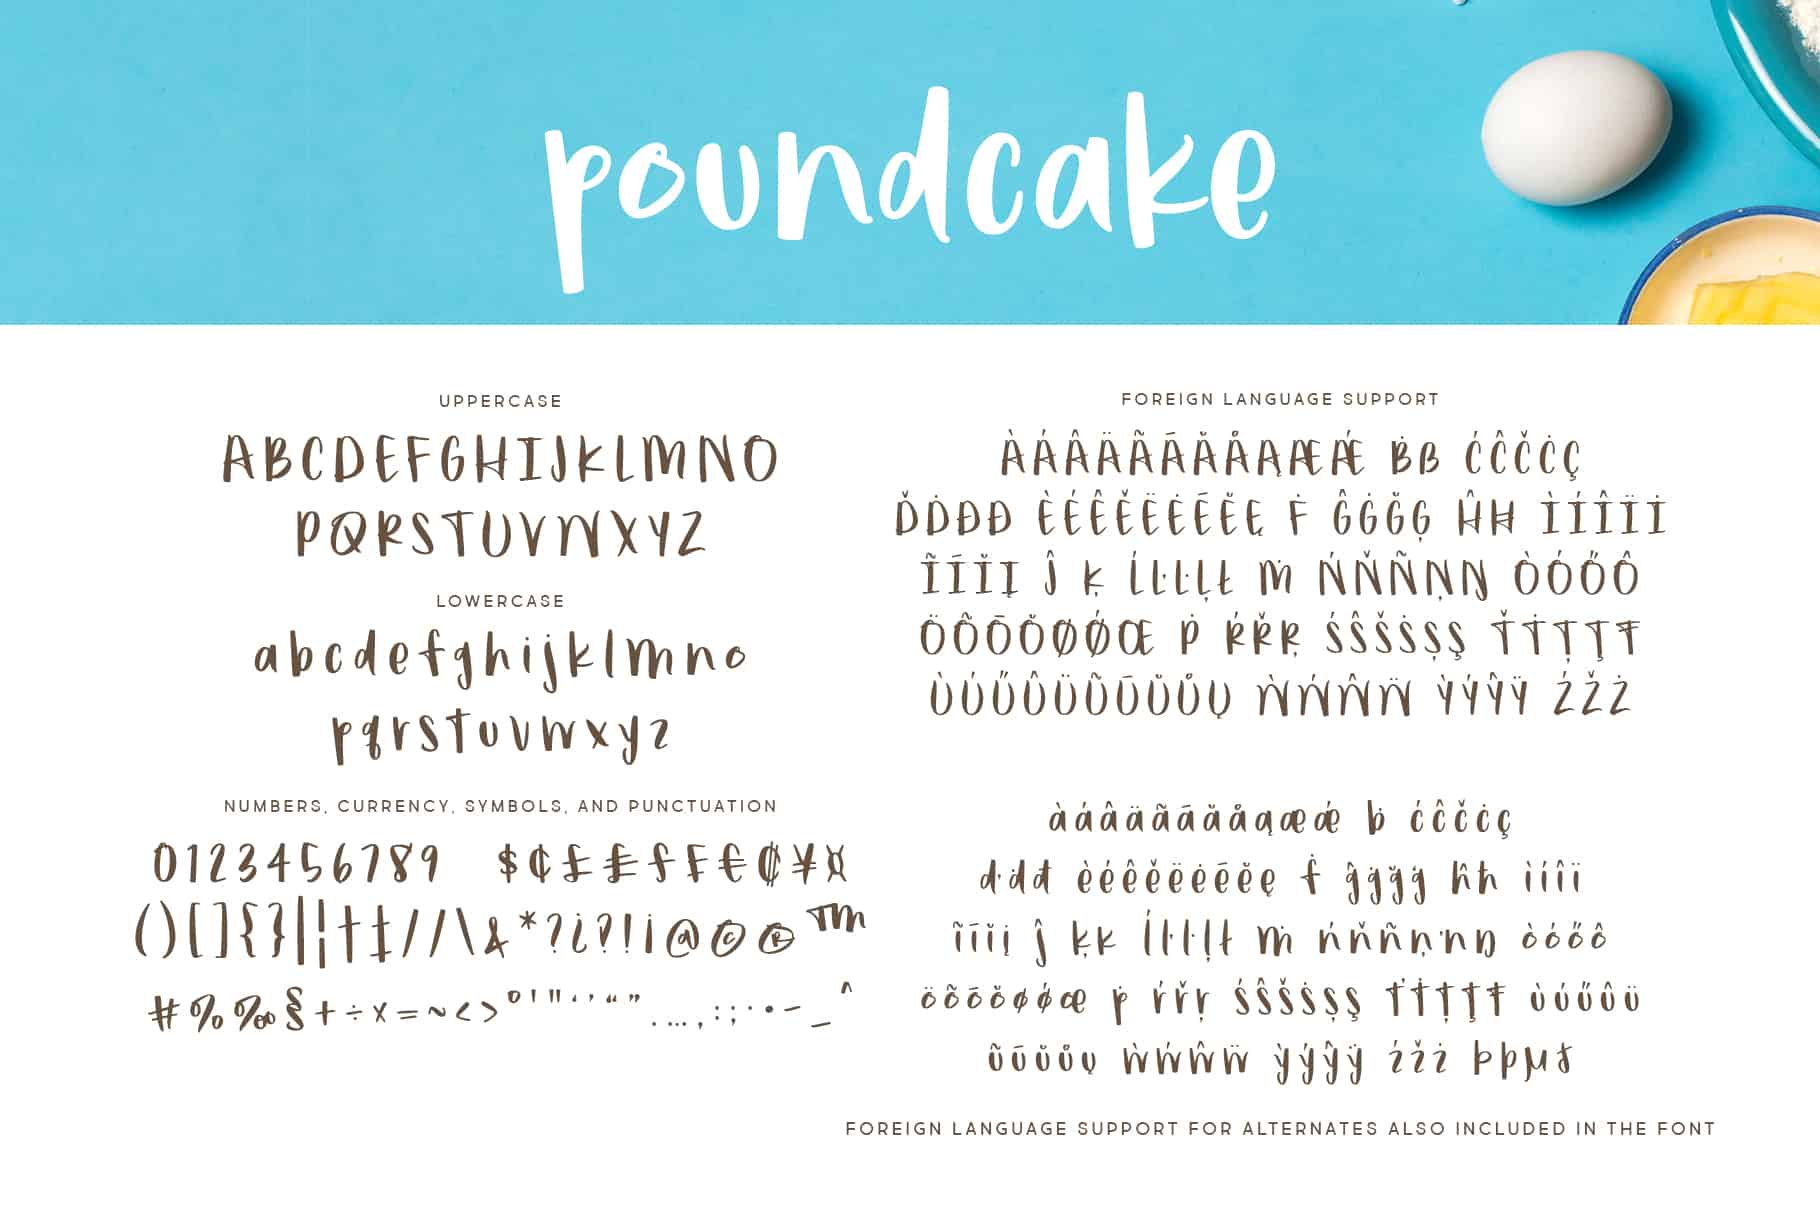 poundcake
UPPERCASE
ABCDEFGHIJKLMNO
PQRSTUVWXYZ
LOWERCASE
abcdefghijklmno
pqrstuvwxyz
NUMBERS, CURRENCY, SYMBOLS, AND PUNCTUATION
0123456789 $¢£₤ƒ₣€₡¥¤
()[]{}|¦†‡/⁄\&*?¿?!¡@©®™
#%‰§+÷×=~<>°'"‘’“”.…,:;·•-_^
FOREIGN LANGUAGE SUPPORT
ÀÁÂÄÃĀĂÅĄÆǼ Ḃß ĆĈČĊÇ
ĎḊĐÐ ÈÉÊĚËĖĒĔĘ Ḟ ĜĠĞĢ ĤĦ ÌÍÎÏİ
ĨĪĬĮ Ĵ Ķ ĹĽĿĻŁ Ṁ ŃŇÑŅŊ ÒÓŐÔ
ÖÕŌŎØǾŒ Ṗ ŔŘŖ ŚŜŠṠȘŞ ŤṪȚŢŦ
ÙÚŰÛÜŨŪŬŮŲ ẀẂŴẄ ỲÝŶŸ ŹŽŻ
àáâäãāăåąæǽ ḃ ćĉčċç
ďḋđ èéêěëėēĕę ḟ ĝġğģ ĥħ ìíîï
ĩīĭį ĵ ķĸ ĺľŀļł ṁ ńňñņŉŋ òóőô
öõōŏøǿœ ṗ ŕřŗ śŝšṡșş ťṫțţŧ ùúűûü
ũūŭůų ẁẃŵẅ ỳýŷÿ źžż Þþµ
FOREIGN LANGUAGE SUPPORT FOR ALTERNATES ALSO INCLUDED IN THE FONT